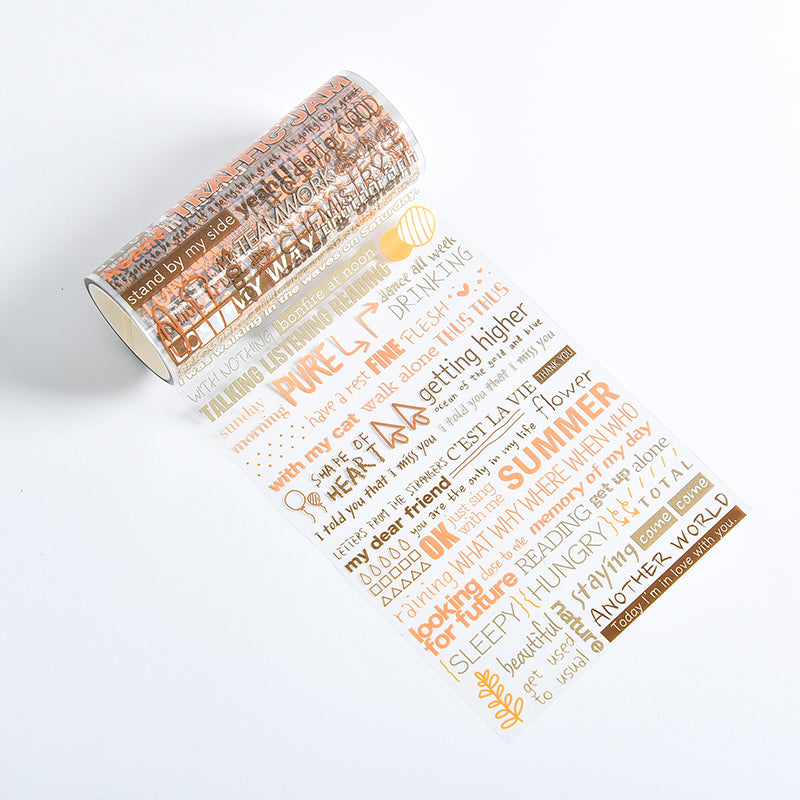 TRAFFIC JAM
stand by my side
yeah!!
GOOD
TEAMWORK
CHEMISTRY
MY WAY
walking in the waves on Saturdays
WITH NOTHING
bonfire at noon
TALKING LISTENING READING
dance all week
DRINKING
sunday
morning
PURE
have a rest
FINE
FLESH
THUS THUS
with my cat
walk alone
getting higher
ocean of the gold and blue
SHAPE OF
HEART
i told you that i miss you
i told you that i miss you
THANK YOU
LETTERS FROM THE STRANGERS
C'EST LA VIE
flower
my dear friend
you are the only in my life
SUMMER
OK
just sing
with me
raining
WHAT WHY WHERE WHEN WHO
close to me
memory of my day
looking
for future
READING
get up
alone
{SLEEPY}
{HUNGRY}
TOTAL
beautiful
nature
staying
come
come
get used
to usual
ANOTHER WORLD
Today I'm in love with you.